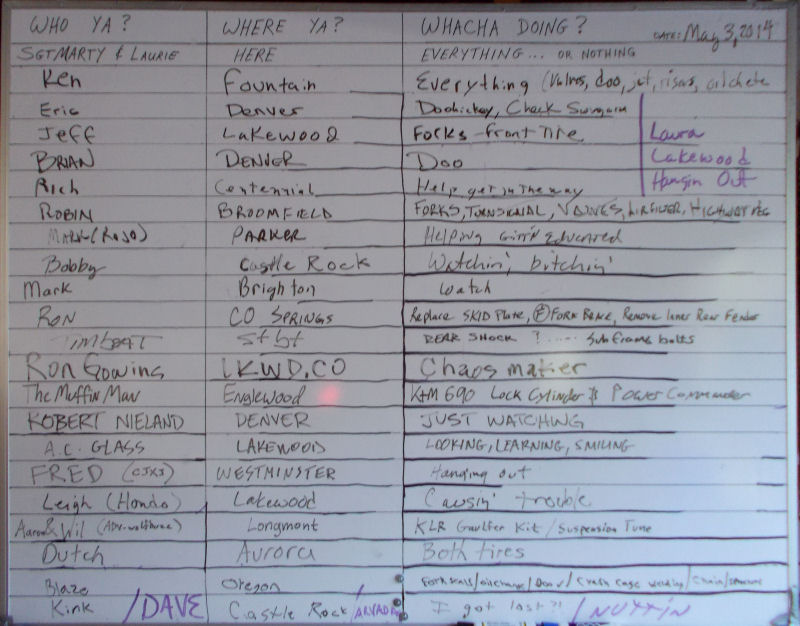 WHO YA? WHERE YA? WHACHA DOING? DATE: May 3, 2014
SGT MARTY & LAURIE HERE EVERYTHING... OR NOTHING
Ken Fountain Everything (Valves, doo, jet,
Eric Denver Doohickey, Check
Jeff Lakewood Forks - front Tire Laura
BRIAN DENVER Doo Lakewood
Rich Centennial Help get in the way Hangin Out
ROBIN BROOMFIELD FORKS, TURNSIGNAL, VALVES, AIRFILTER, HIGHWAY PEG
MARK (ROJO) PARKER HELPING GITT'N EDUCATED
Bobby Castle Rock Watchin', bitchin'
Mark Brighton watch
RON CO SPRINGS Replace SKID Plate, (F) FORK BRACE, Remove Inner Rear Fender
TimBEAT St bt REAR SHOCK ?...... Subframe bolts
Ron Gowins LKWD, CO Chaos maker
The Muffin Man Englewood KTM 690 Lock Cylinder & Power Commander
ROBERT NIELAND DENVER JUST WATCHING
A.C. GLASS LAKEWOOD LOOKING, LEARNING, SMILING
FRED (CJXJ) WESTMINSTER Hanging out
Leigh (Hondo) Lakewood Causin' trouble
Aaron & Wil (ADV-wolfhree) Longmont KLR Gaulfer Kit / Suspension Tune
Dutch Aurora Both tires
Blaze Oregon Fork seals / oil change / Doo / Crash Cage welding / Chain /
Kink / DAVE Castle Rock / ARVADA I got last?! / NUTTIN